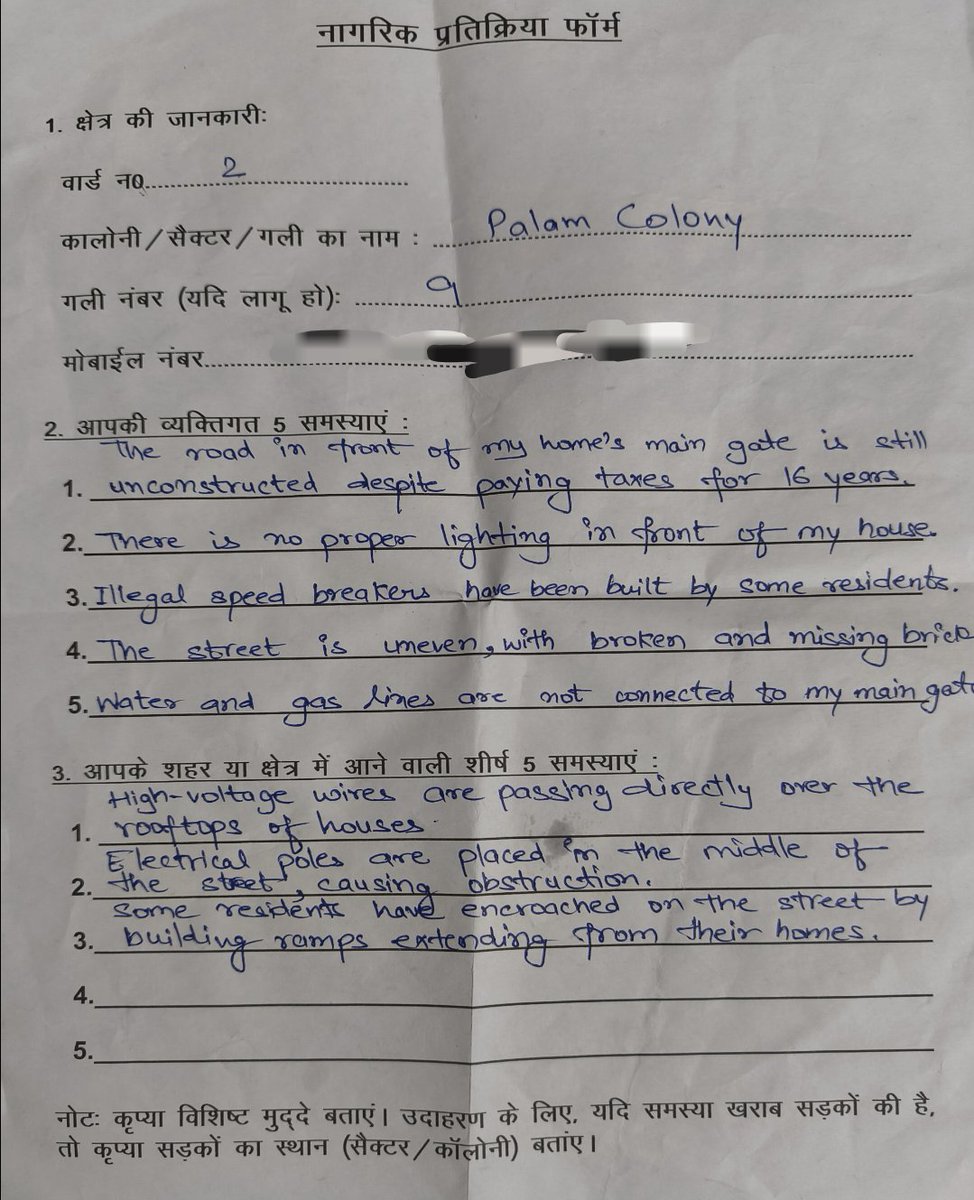 नागरिक प्रतिक्रिया फॉर्म
1. क्षेत्र की जानकारीः
वार्ड न0. 2
कालोनी/सैक्टर/गली का नाम : Palam Colony
गली नंबर (यदि लागू हो): 9
मोबाईल नंबर
2. आपकी व्यक्तिगत 5 समस्याएं :
The road in front of my home's main gate is still
1. unconstructed despite paying taxes for 16 years.
2. There is no proper lighting in front of my house.
3. Illegal speed breakers have been built by some residents.
4. The street is uneven, with broken and missing brick
5. Water and gas lines are not connected to my main gate
3. आपके शहर या क्षेत्र में आने वाली शीर्ष 5 समस्याएं :
High-voltage wires are passing directly over the
1. rooftops of houses.
Electrical poles are placed in the middle of
2. the street, causing obstruction.
Some residents have encroached on the street by
3. building ramps extending from their homes.
4.
5.
नोटः कृप्या विशिष्ट मुद्दे बताएं। उदाहरण के लिए, यदि समस्या खराब सड़कों की है,
तो कृप्या सड़कों का स्थान (सैक्टर/कॉलोनी) बतांए।